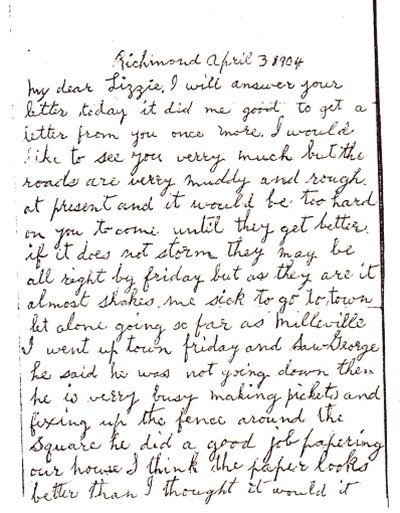 Richmond April 3 1904
My dear Lizzie, I will answer your
letter today it did me good to get a
letter from you once more. I would
like to see you verry much but the
roads are verry muddy and rough
at present and it would be too hard
on you to come until they get better.
if it does not storm they may be
all right by friday but as they are it
almost shakes me sick to go to town
let alone going so far as Milleville
I went up town friday and saw George
he said he was not going down then
he is verry busy making pickets and
fixing up the fence around the
Square he did a good job papering
our house I think the paper looks
better than I thought it would it